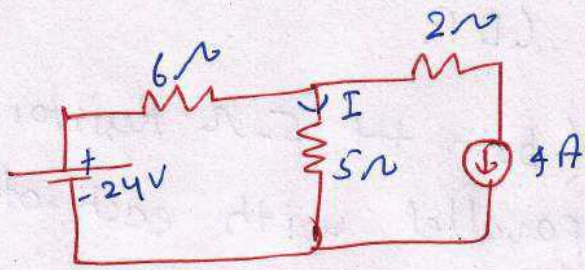 6Ω
2Ω
I
5Ω
4A
+
-24V